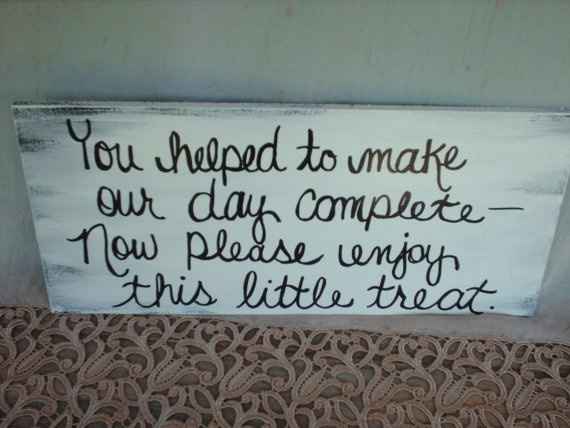 You helped to make
our day complete—
Now please enjoy
this little treat.